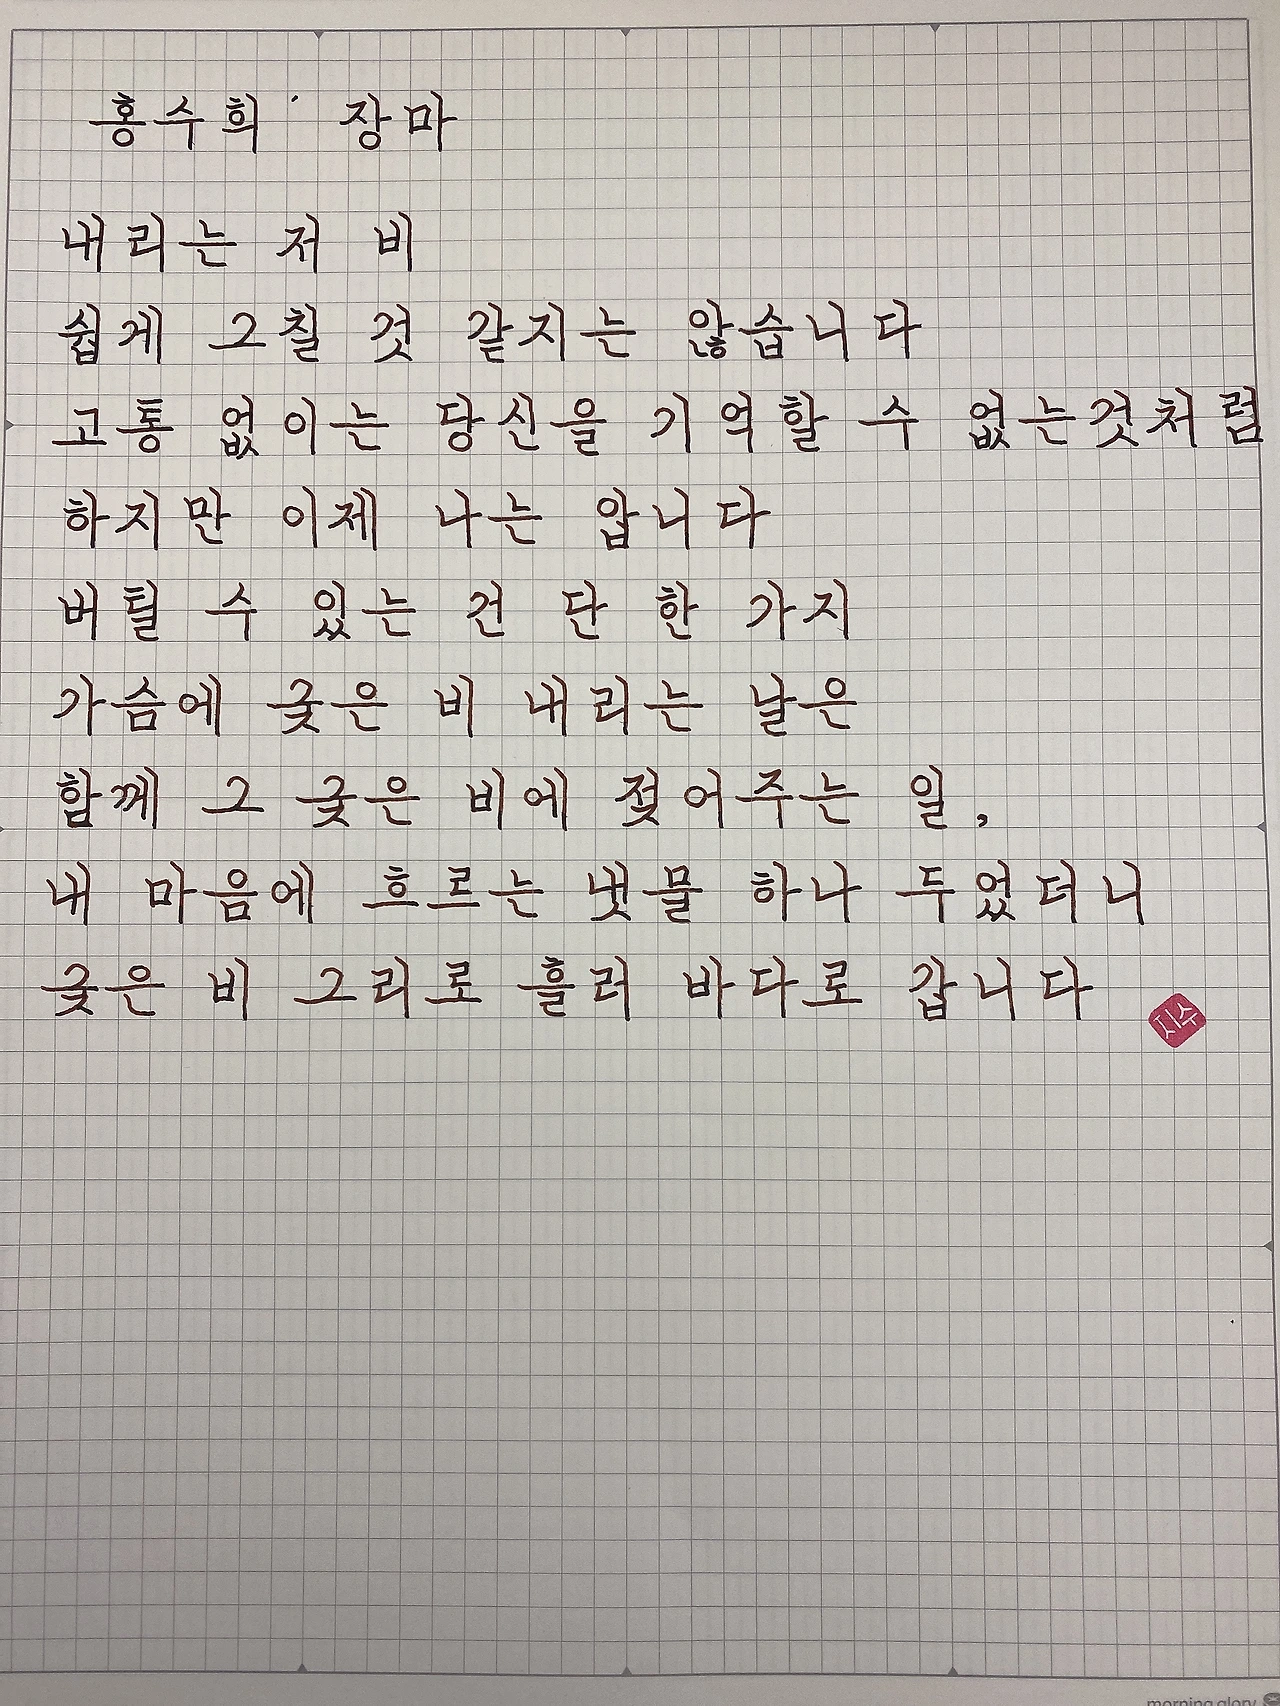 홍수희 · 장마
내리는 저 비
쉽게 그칠 것 같지는 않습니다
고통 없이는 당신을 기억할 수 없는것처럼
하지만 이제 나는 압니다
버틸 수 있는 건 단 한 가지
가슴에 궂은 비 내리는 날은
함께 그 궂은 비에 젖어주는 일,
내 마음에 흐르는 냇물 하나 두었더니
궂은 비 그리로 흘러 바다로 갑니다
지수
morning glory